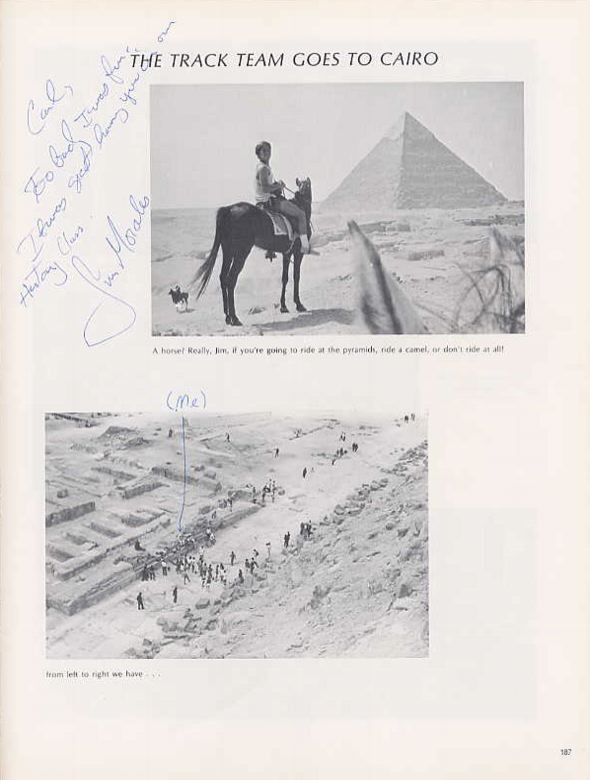 THE TRACK TEAM GOES TO CAIRO
Carl,
Too Bad I was
It was good having you in our
History Class.
Jim Morales
A horse? Really, Jim, if you're going to ride at the pyramids, ride a camel, or don't ride at all!
(me)
from left to right we have . . .
187